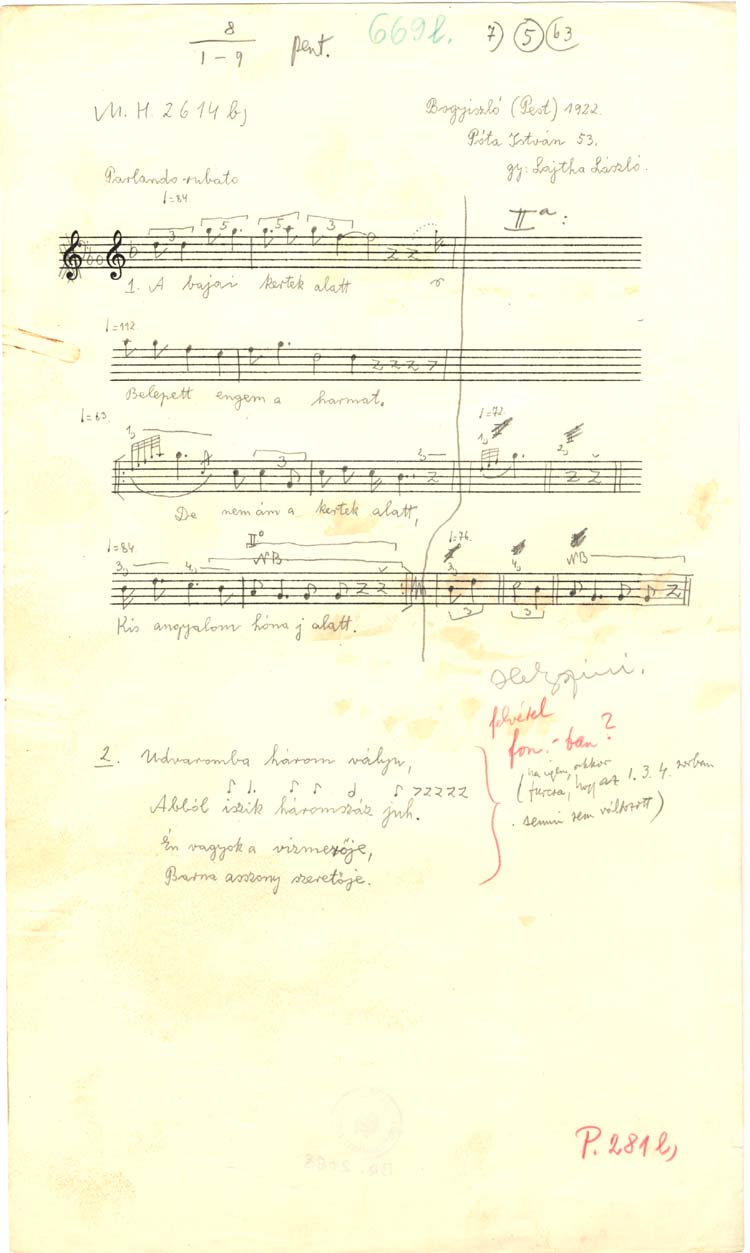 8
1-9
pent.
669l.
7) 5 63
M. H. 2614 b)
Bogyiszló (Pest) 1922.
Póta István 53.
gy: Lajtha László.
Parlando-rubato
=84.
IIa:
3 5 5 3
1. A bajai kertek alatt
=112.
Belepett engem a harmat.
=63.
1)
3
2)
=72.
1) 2)
De nem ám a kertek alatt,
=84.
3) 4) NB
=76.
3) 4) NB
3 3
Kis angyalom hóna j alatt.
felvétel
fon.-ban?
(ha igen, akkor
furcsa, hogy az 1. 3. 4. sorban
semmi sem változott)
2. Udvaromba három vályu,
Abból iszik háromszáz juh.
Én vagyok a vizmerője,
Barna asszony szeretője.
P. 281 l)